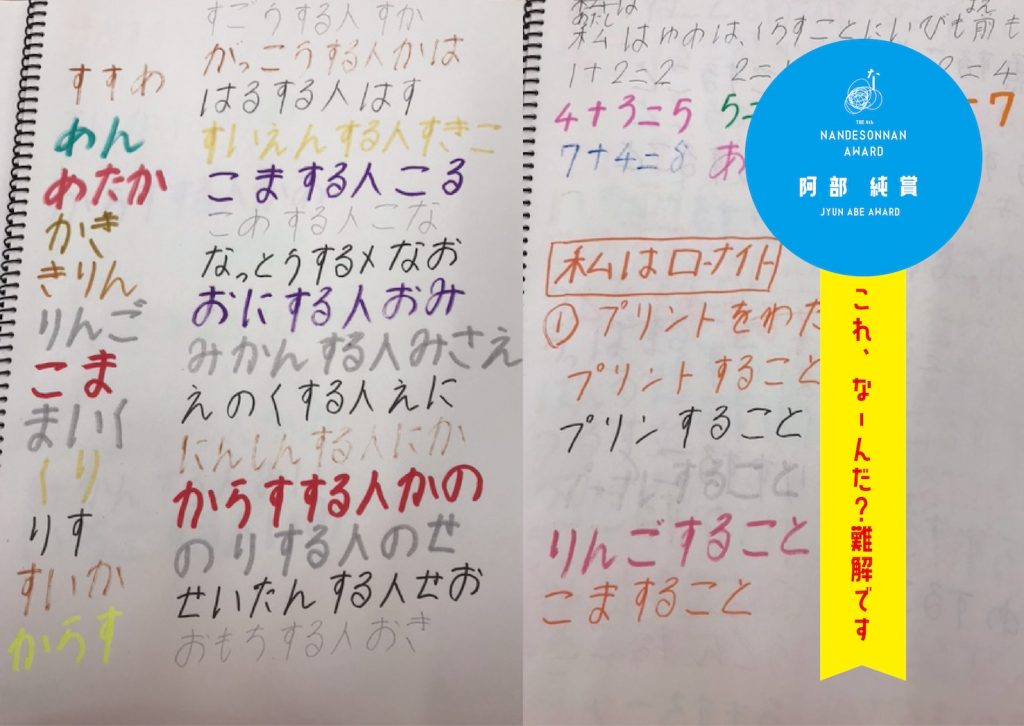 すすわ
めん
めたか
かき
きりん
りんご
こま
まいく
くり
りす
すいか
からす
すごうする人 すか
がっこうする人かは
はるする人はす
すいえんする人すきこ
こまする人こる
こめする人こな
なっとうする人なお
おにする人おみ
みかんする人みさえ
えのくする人えに
にんしんする人にか
からすする人かの
のりする人のせ
せいたんする人せお
おもちする人おき
私は
1+2=2
4+3=5
7+4=8
私はローナイト
① プリントをわた
プリントすること
プリンすること
りんごすること
こますること
な
THE 6th
NANDESONNAN
AWARD
阿部 純賞
JYUN ABE AWARD
これ、なーんだ?難解です